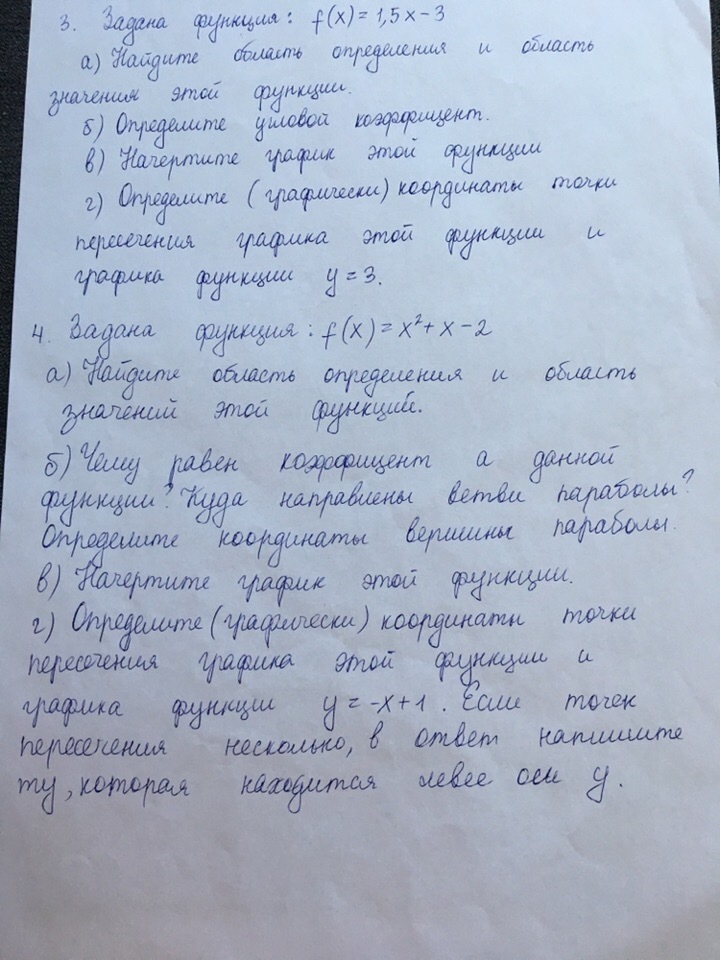 3. Задана функция: f(x) = 1,5x - 3
а) Найдите область определения и область
значения этой функции.
б) Определите угловой коэффицент.
в) Начертите график этой функции
г) Определите (графически) координаты точки
пересечения графика этой функции и
графика функции y = 3.
4. Задана функция: f(x) = x² + x - 2
а) Найдите область определения и область
значений этой функций.
б) Чему равен коэффицент а данной
функции? Куда направлены ветви параболы?
Определите координаты вершины параболы.
в) Начертите график этой функции.
г) Определите (графически) координаты точки
пересечения графика этой функции и
графика функции y = -x + 1. Если точек
пересечения несколько, в ответ напишите
ту, которая находится левее оси y.